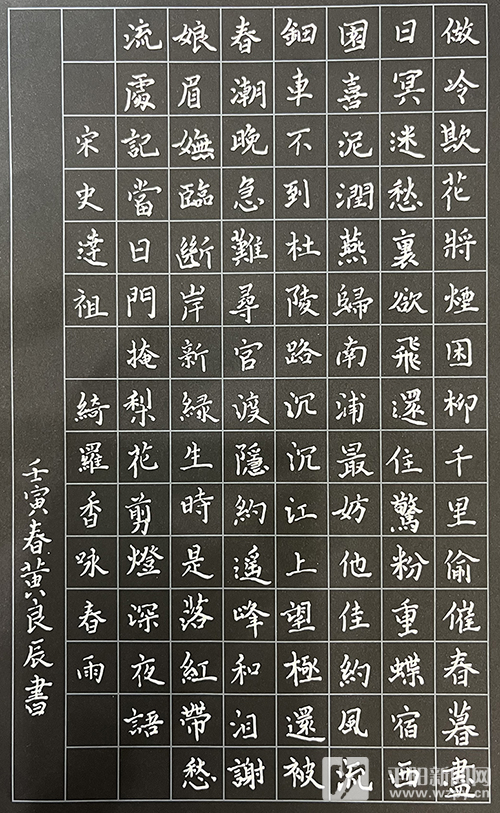 做冷欺花將煙困柳千里偷催春暮盡
日冥迷愁裏欲飛還住驚粉重蝶宿西
園喜泥潤燕歸南浦最妨他佳約風流
鈿車不到杜陵路沉沉江上望極還被
春潮晚急難尋官渡隱約遥峰和泪謝
娘眉嫵臨斷岸新緑生時是落紅帶愁
流處記當日門掩梨花剪燈深夜語
宋史達祖 綺羅香 咏春雨
壬寅春黄良辰書
平阳新闻网